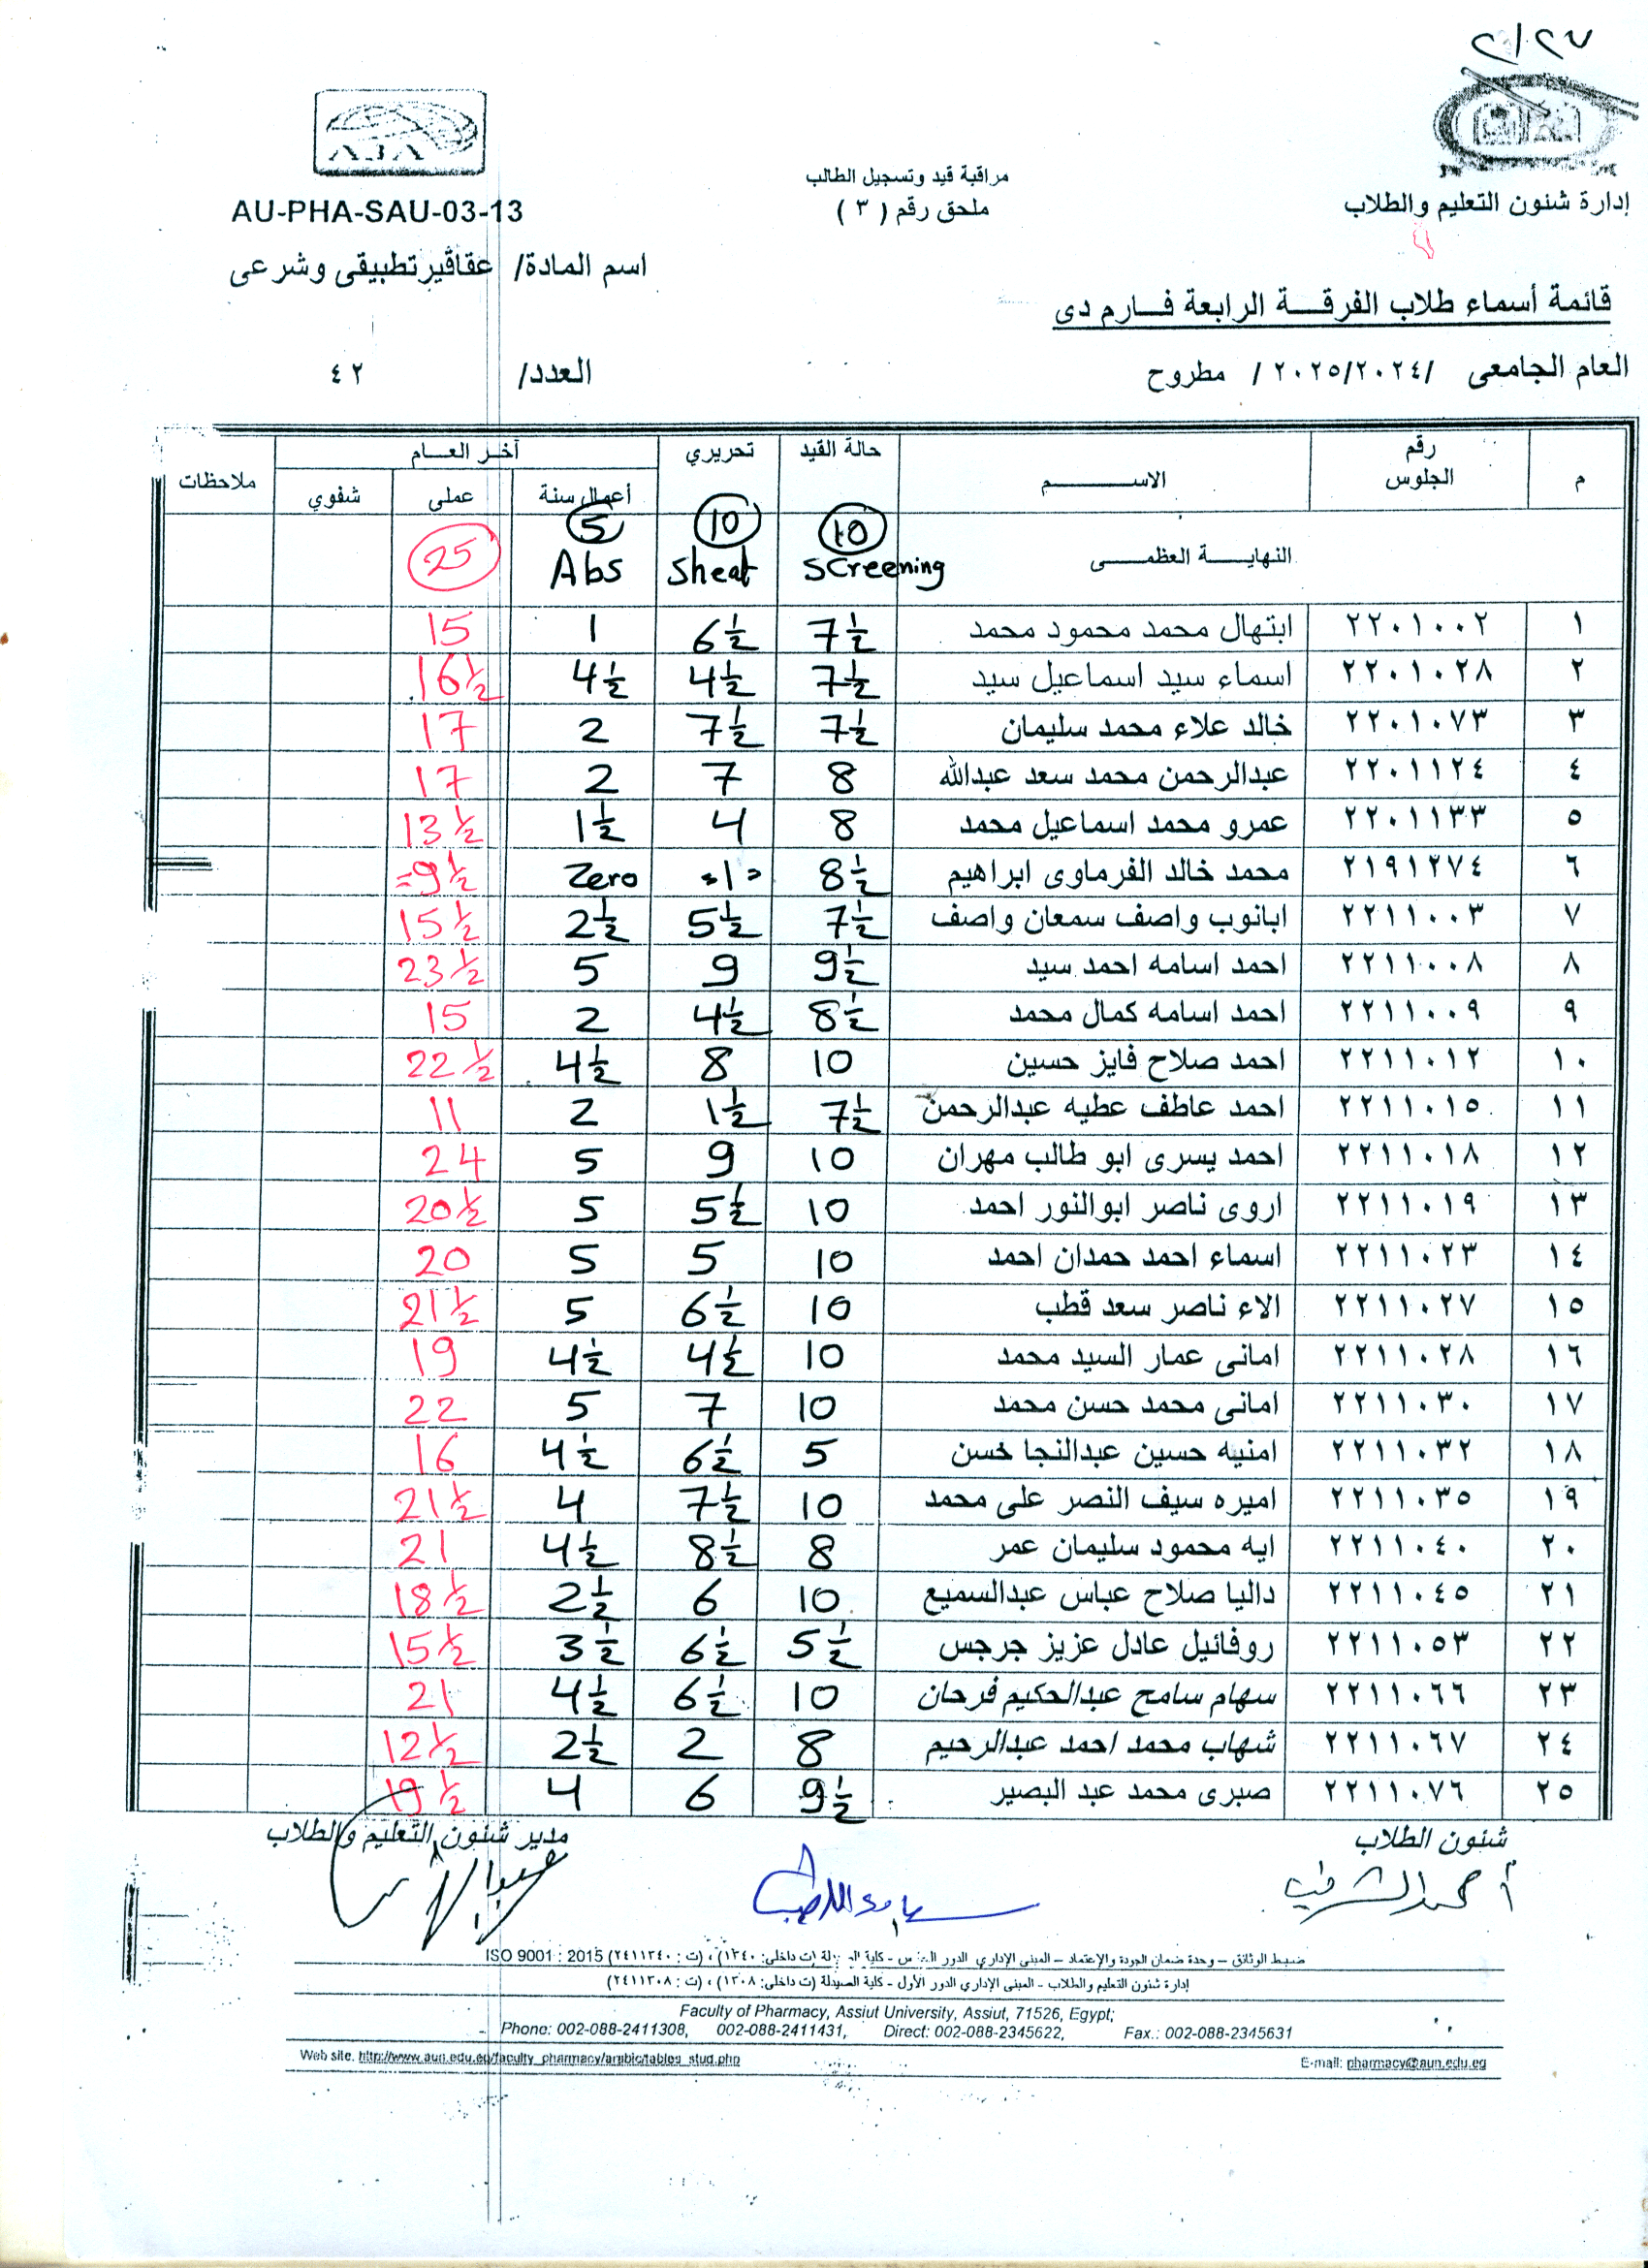 ٢/٢٧
AJA
مراقبة قيد وتسجيل الطالب
إدارة شئون التعليم والطلاب
ملحق رقم ( ٣ )
AU-PHA-SAU-03-13
اسم المادة/ عقاقيرتطبيقى وشرعى
قائمة أسماء طلاب الفرقـــة الرابعة فـارم دى
العام الجامعى /٢٠٢٥/٢٠٢٤ / مطروح
العدد/ ٤٢
م رقم الجلوس الاســـــم حالة القيد تحريري آخـر العــام ملاحظات
أعمال سنة عملى شفوي
النهايــة العظمــى 10 Screening 10 Sheat 5 Abs 25
١ ٢٢٠١٠٠٢ ابتهال محمد محمود محمد 7½ 6½ 1 15
٢ ٢٢٠١٠٢٨ اسماء سيد اسماعيل سيد 7½ 4½ 4½ 16½
٣ ٢٢٠١٠٧٣ خالد علاء محمد سليمان 7½ 7½ 2 17
٤ ٢٢٠١١٢٤ عبدالرحمن محمد سعد عبدالله 8 7 2 17
٥ ٢٢٠١١٣٣ عمرو محمد اسماعيل محمد 8 4 1½ 13½
٦ ٢١٩١٢٧٤ محمد خالد الفرماوى ابراهيم 8½ «1» Zero =9½
٧ ٢٢١١٠٠٣ ابانوب واصف سمعان واصف 7½ 5½ 2½ 15½
٨ ٢٢١١٠٠٨ احمد اسامه احمد سيد 9½ 9 5 23½
٩ ٢٢١١٠٠٩ احمد اسامه كمال محمد 8½ 4½ 2 15
١٠ ٢٢١١٠١٢ احمد صلاح فايز حسين 10 8 4½ 22½
١١ ٢٢١١٠١٥ احمد عاطف عطيه عبدالرحمن 7½ 1½ 2 11
١٢ ٢٢١١٠١٨ احمد يسرى ابو طالب مهران 10 9 5 24
١٣ ٢٢١١٠١٩ اروى ناصر ابوالنور احمد 10 5½ 5 20½
١٤ ٢٢١١٠٢٣ اسماء احمد حمدان احمد 10 5 5 20
١٥ ٢٢١١٠٢٧ الاء ناصر سعد قطب 10 6½ 5 21½
١٦ ٢٢١١٠٢٨ امانى عمار السيد محمد 10 4½ 4½ 19
١٧ ٢٢١١٠٣٠ امانى محمد حسن محمد 10 7 5 22
١٨ ٢٢١١٠٣٢ امنيه حسين عبدالنجا حسن 5 6½ 4½ 16
١٩ ٢٢١١٠٣٥ اميره سيف النصر على محمد 10 7½ 4 21½
٢٠ ٢٢١١٠٤٠ ايه محمود سليمان عمر 8 8½ 4½ 21
٢١ ٢٢١١٠٤٥ داليا صلاح عباس عبدالسميع 10 6 2½ 18½
٢٢ ٢٢١١٠٥٣ روفائيل عادل عزيز جرجس 5½ 6½ 3½ 15½
٢٣ ٢٢١١٠٦٦ سهام سامح عبدالحكيم فرحان 10 6½ 4½ 21
٢٤ ٢٢١١٠٦٧ شهاب محمد احمد عبدالرحيم 8 2 2½ 12½
٢٥ ٢٢١١٠٧٦ صبرى محمد عبد البصير 9½ 6 4 19½
شئون الطلاب
مدير شئون التعليم والطلاب
ضبط الوثائق – وحدة ضمان الجودة والإعتماد – المبنى الإداري الدور - كلية (ت داخلى: ١٣٤٠) ، (ت : ٢٤١١٣٤٠) ISO 9001 : 2015
إدارة شئون التعليم والطلاب – المبنى الإداري الدور الأول - كلية الصيدلة (ت داخلى: ١٣٠٨) ، (ت : ٢٤١١٣٠٨)
Faculty of Pharmacy, Assiut University, Assiut, 71526, Egypt;
Phone: 002-088-2411308, 002-088-2411431, Direct: 002-088-2345622, Fax.: 002-088-2345631
Web site. http://www.aun.edu.eg/faculty_pharmacy/arabic/tables_stud.php E-mail: pharmacy@aun.edu.eg